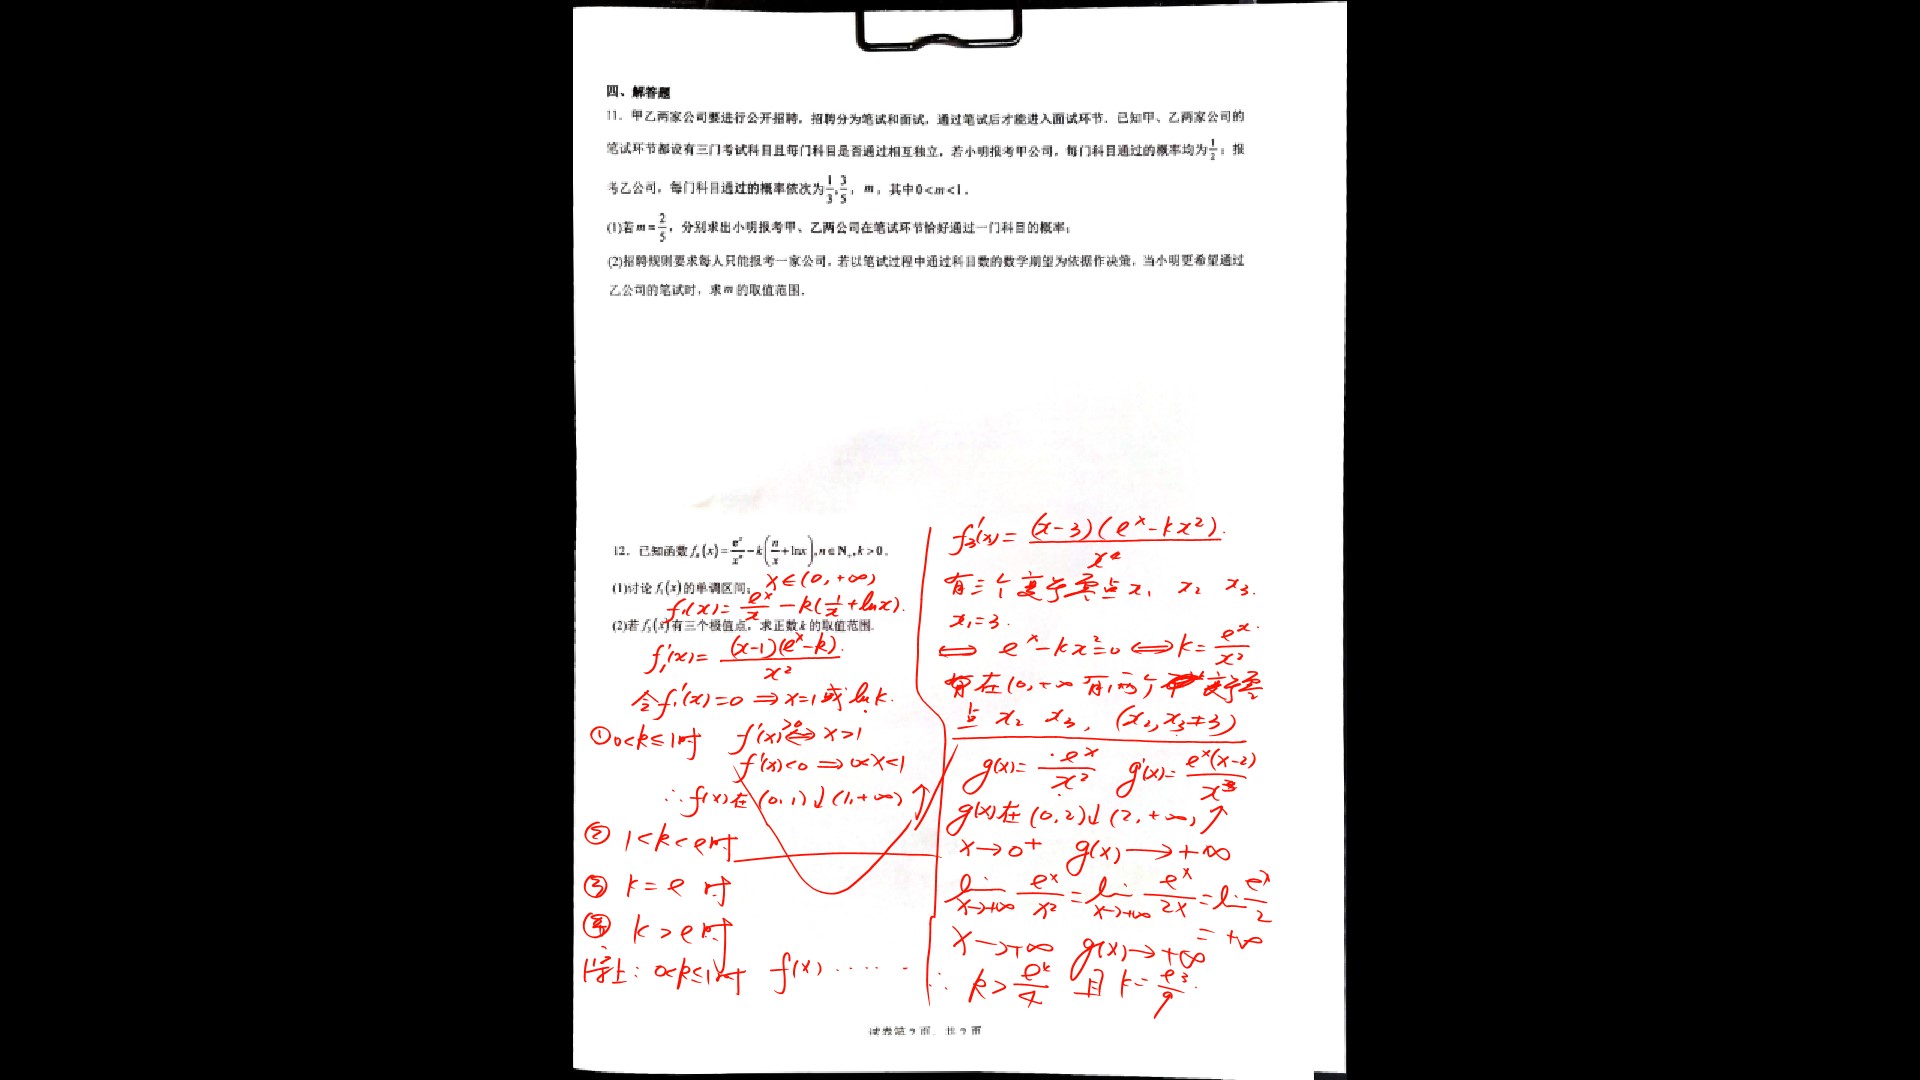 四、解答题
11. 甲乙两家公司要进行公开招聘，招聘分为笔试和面试，通过笔试后才能进入面试环节．已知甲、乙两家公司的
笔试环节都设有三门考试科目且每门科目是否通过相互独立，若小明报考甲公司，每门科目通过的概率均为1/2；报
考乙公司，每门科目通过的概率依次为1/3, 3/5, m，其中0<m<1．
(1)若m=2/5，分别求出小明报考甲、乙两公司在笔试环节恰好通过一门科目的概率；
(2)招聘规则要求每人只能报考一家公司，若以笔试过程中通过科目数的数学期望为依据作决策，当小明更希望通过
乙公司的笔试时，求m的取值范围．
12. 已知函数fₙ(x)=eˣ/xⁿ-k(n/x+lnx), n∈N₊, k>0．
(1)讨论f₁(x)的单调区间；
x∈(0,+∞)
f₁(x)=eˣ/x-k(1/x+lnx).
(2)若f₃(x)有三个极值点，求正数k的取值范围.
f₁'(x)=(x-1)(eˣ-k)/x²
令f₁'(x)=0⇒x=1或lnk.
①0<k≤1时 f'(x)>0⇔x>1
f'(x)<0⇒0<x<1
∴f(x)在(0,1)↓(1,+∞)↑
② 1<k<e时
③ k=e时
④ k>e时
综上：0<k≤1时 f(x)······
f₃'(x)=(x-3)(eˣ-kx²)/x⁴
有三个变号零点x₁ x₂ x₃.
x₁=3.
⇔ eˣ-kx²=0⇔k=eˣ/x²
在(0,+∞有两个变号零
点x₂ x₃, (x₂,x₃≠3)
g(x)=eˣ/x² g'(x)=eˣ(x-2)/x³
g(x)在(0,2)↓(2,+∞)↑
x→0⁺ g(x)→+∞
lim x→+∞ eˣ/x²=lim x→+∞ eˣ/2x=lim eˣ/2
=+∞
x→+∞ g(x)→+∞
∴k>e²/4 且k=e³/9.
试卷第2页，共2页